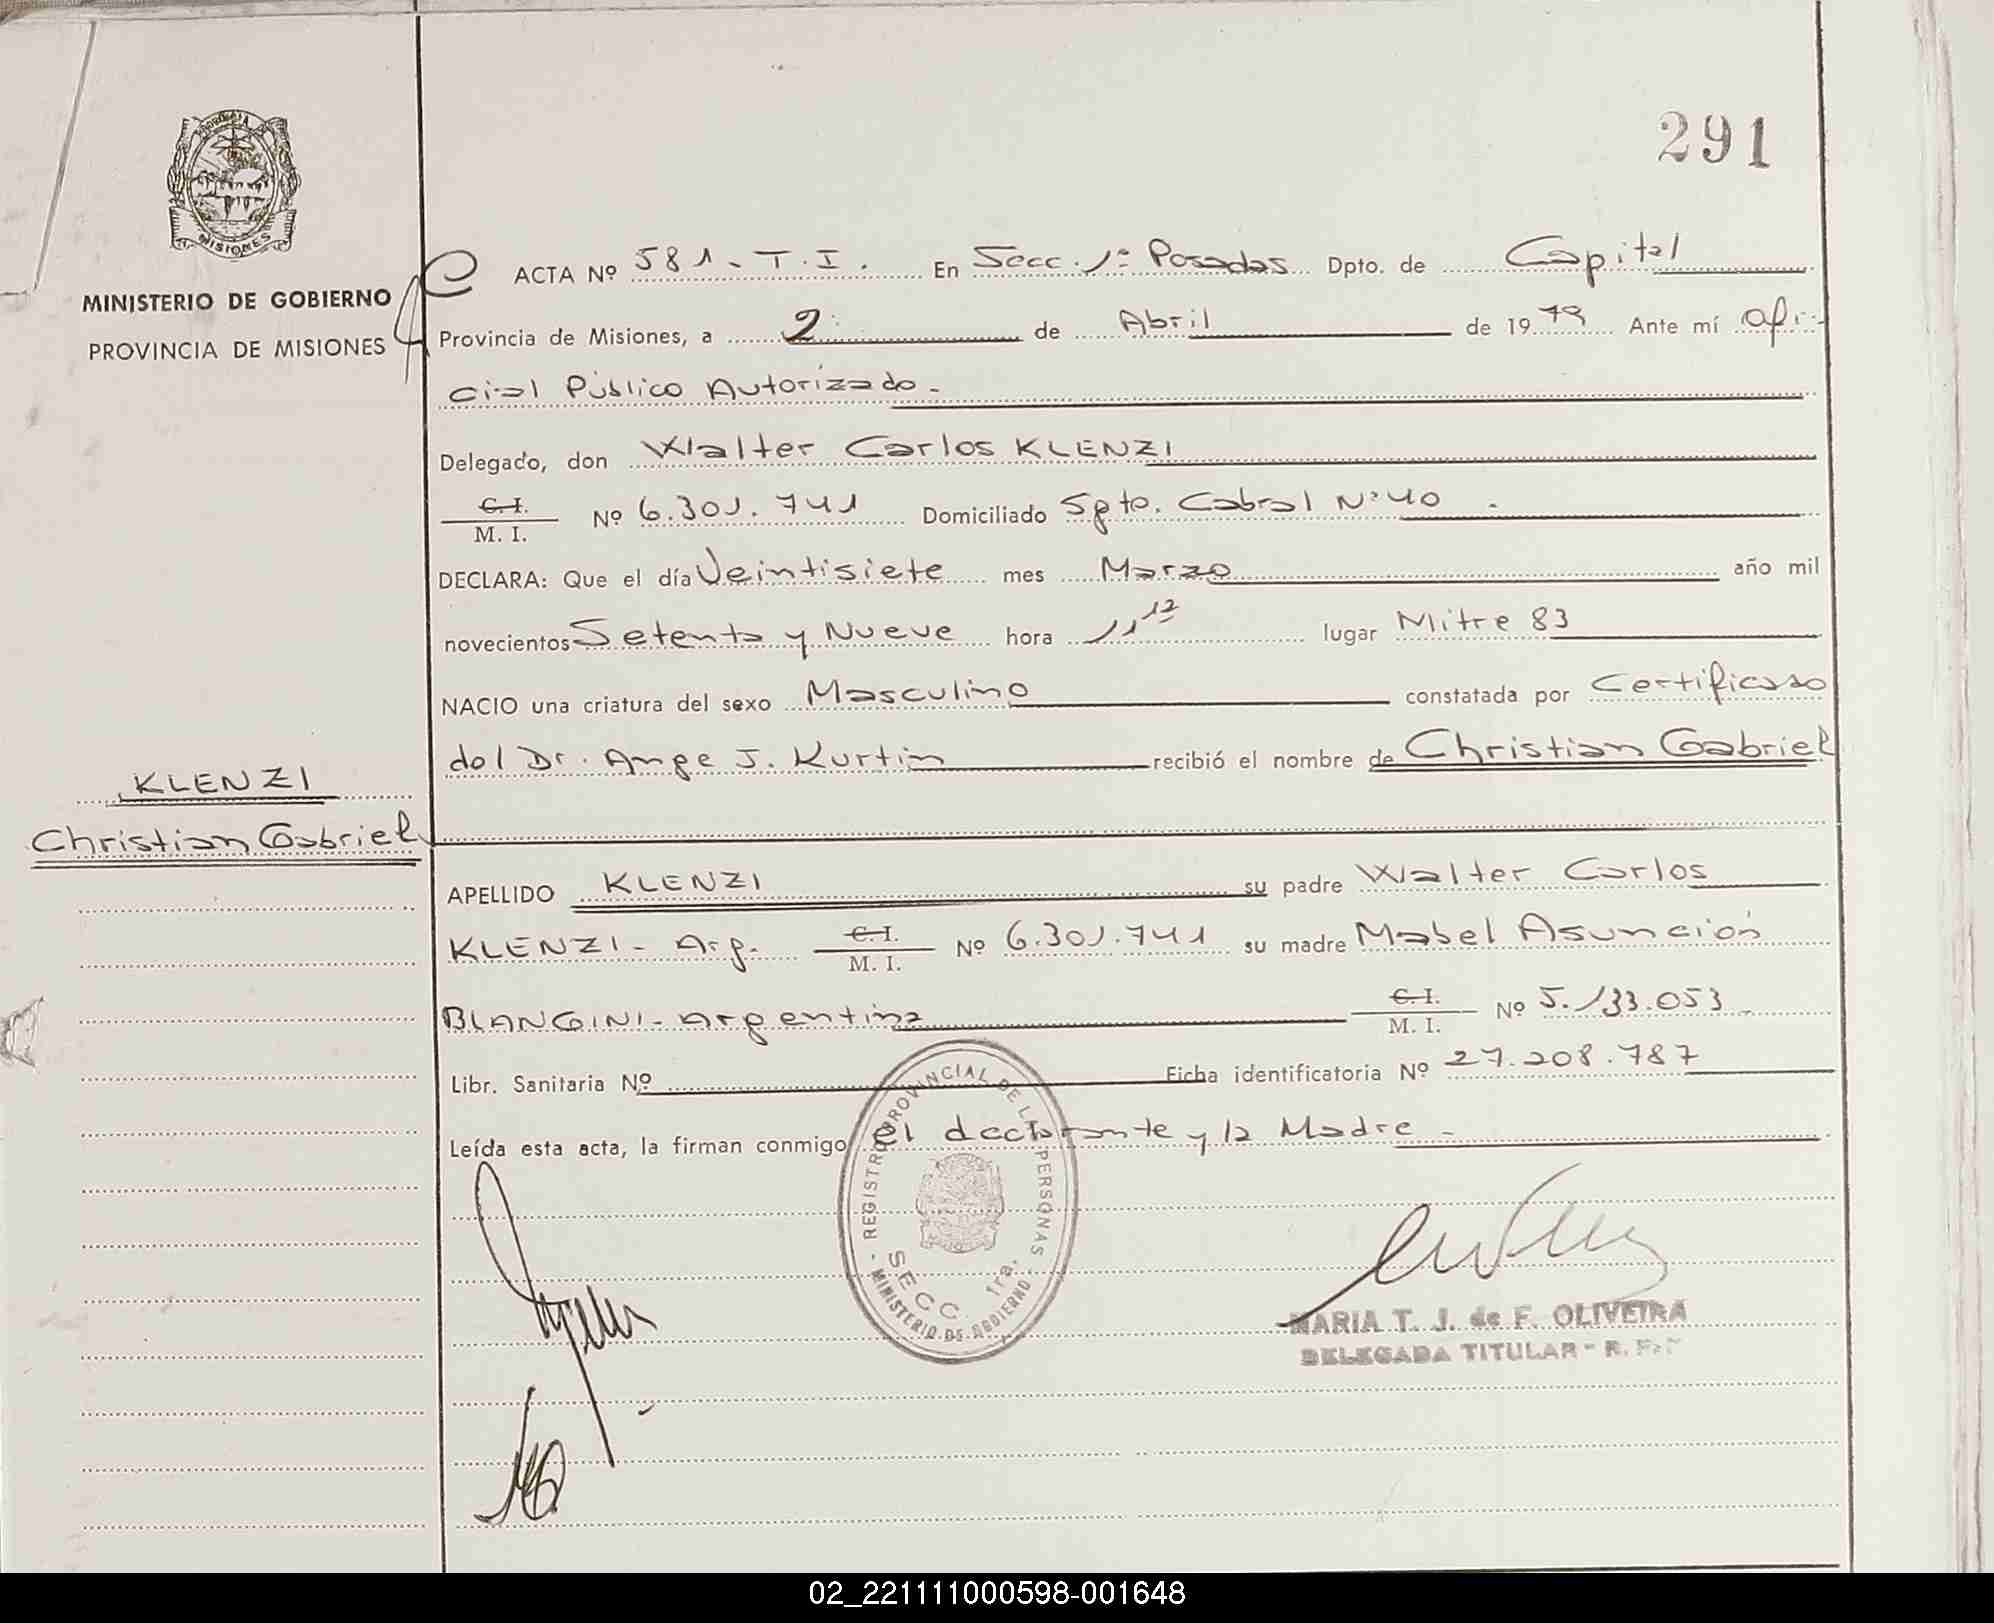 291
PROVINCIA
MISIONES
MINISTERIO DE GOBIERNO
PROVINCIA DE MISIONES
ACTA Nº 581 - T.I. En Secc. 1ª Posadas Dpto. de Capital
Provincia de Misiones, a 2 de Abril de 1979 Ante mí Ofi-
cial Público Autorizado -
Delegado, don Walter Carlos KLENZI
C. I.
M. I. Nº 6.301.741 Domiciliado Sgto. Cabral Nº 40 .
DECLARA: Que el día Veintisiete mes Marzo año mil
novecientos Setenta y Nueve hora 11 12 lugar Mitre 83
NACIO una criatura del sexo Masculino constatada por Certificado
del Dr. Ange J. Kurtin recibió el nombre de Christian Gabriel
KLENZI
Christian Gabriel
APELLIDO KLENZI su padre Walter Carlos
KLENZI - Arg. C. I.
M. I. Nº 6.301.741 su madre Mabel Asunción
BLANGINI - Argentina C. I.
M. I. Nº 5.133.053
Libr. Sanitaria Nº Ficha identificatoria Nº 27.208.787
Leída esta acta, la firman conmigo el declarante y la Madre -
REGISTRO PROVINCIAL DE LAS PERSONAS
SECC. 1ra.
MINISTERIO DE GOBIERNO
MARIA T. J. de F. OLIVEIRA
DELEGADA TITULAR - R.
02_221111000598-001648